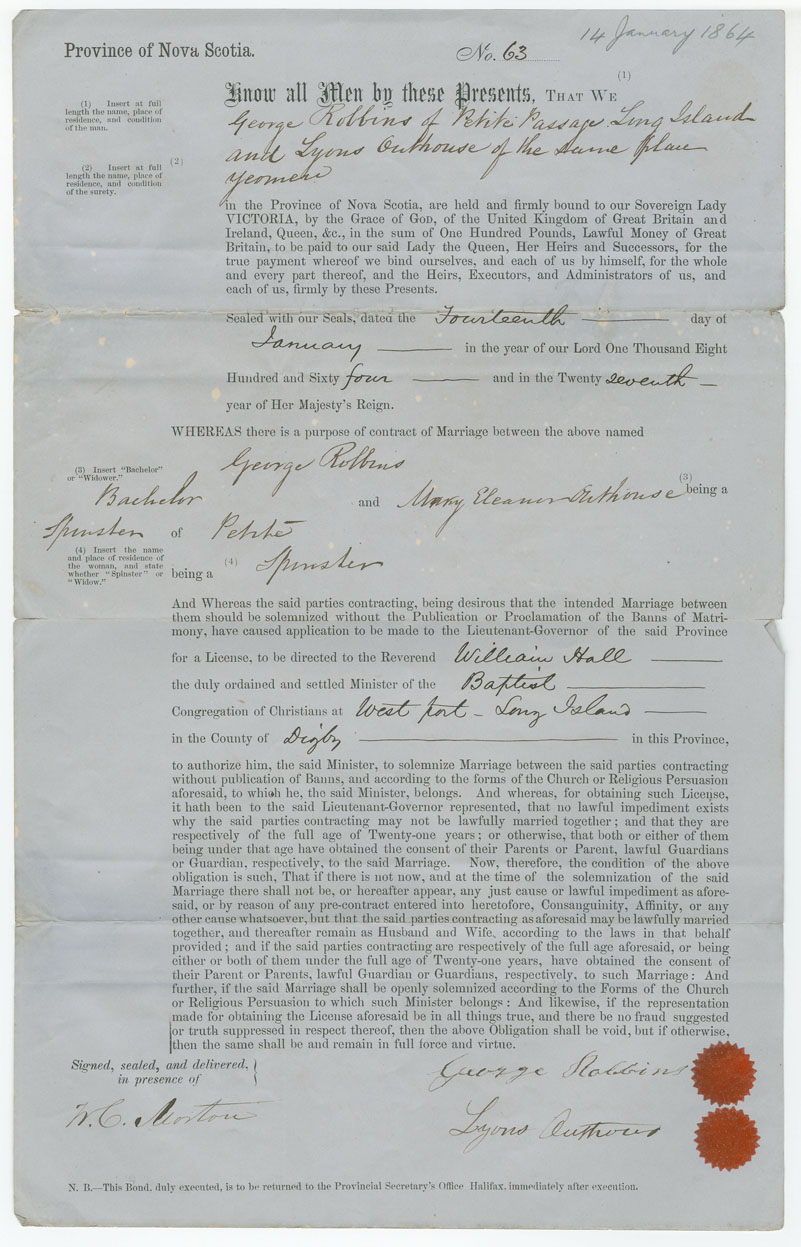 14 January 1864
Province of Nova Scotia.
No. 63
(1)
Know all Men by these Presents, THAT WE
(1) Insert at full
length the name, place of
residence, and condition
of the man.
George Robbins of Petite Passage Long Island
(2) Insert at full
length the name, place of
residence, and condition
of the surety.
(2)
and Lyons Outhouse of the same place
yeomen
in the Province of Nova Scotia, are held and firmly bound to our Sovereign Lady
VICTORIA, by the Grace of GOD, of the United Kingdom of Great Britain and
Ireland, Queen, &c., in the sum of One Hundred Pounds, Lawful Money of Great
Britain, to be paid to our said Lady the Queen, Her Heirs and Successors, for the
true payment whereof we bind ourselves, and each of us by himself, for the whole
and every part thereof, and the Heirs, Executors, and Administrators of us, and
each of us, firmly by these Presents.
Sealed with our Seals, dated the Fourteenth day of
January in the year of our Lord One Thousand Eight
Hundred and Sixty four and in the Twenty seventh
year of Her Majesty's Reign.
WHEREAS there is a purpose of contract of Marriage between the above named
(3) Insert "Bachelor"
or "Widower."
George Robbins
(3)
Bachelor and Mary Eleanor Outhouse being a
Spinster of Petite
(4) Insert the name
and place of residence of
the woman, and state
whether "Spinster" or
"Widow."
being a (4) Spinster
And Whereas the said parties contracting, being desirous that the intended Marriage between
them should be solemnized without the Publication or Proclamation of the Banns of Matri-
mony, have caused application to be made to the Lieutenant-Governor of the said Province
for a License, to be directed to the Reverend William Hall
the duly ordained and settled Minister of the Baptist
Congregation of Christians at West port - Long Island
in the County of Digby in this Province,
to authorize him, the said Minister, to solemnize Marriage between the said parties contracting
without publication of Banns, and according to the forms of the Church or Religious Persuasion
aforesaid, to which he, the said Minister, belongs. And whereas, for obtaining such License,
it hath been to the said Lieutenant-Governor represented, that no lawful impediment exists
why the said parties contracting may not be lawfully married together; and that they are
respectively of the full age of Twenty-one years; or otherwise, that both or either of them
being under that age have obtained the consent of their Parents or Parent, lawful Guardians
or Guardian, respectively, to the said Marriage. Now, therefore, the condition of the above
obligation is such, That if there is not now, and at the time of the solemnization of the said
Marriage there shall not be, or hereafter appear, any just cause or lawful impediment as afore-
said, or by reason of any pre-contract entered into heretofore, Consanguinity, Affinity, or any
other cause whatsoever, but that the said parties contracting as aforesaid may be lawfully married
together, and thereafter remain as Husband and Wife, according to the laws in that behalf
provided; and if the said parties contracting are respectively of the full age aforesaid, or being
either or both of them under the full age of Twenty-one years, have obtained the consent of
their Parent or Parents, lawful Guardian or Guardians, respectively, to such Marriage: And
further, if the said Marriage shall be openly solemnized according to the Forms of the Church
or Religious Persuasion to which such Minister belongs: And likewise, if the representation
made for obtaining the License aforesaid be in all things true, and there be no fraud suggested
or truth suppressed in respect thereof, then the above Obligation shall be void, but if otherwise,
then the same shall be and remain in full force and virtue.
Signed, sealed, and delivered,
in presence of
George Robbins
W. C. Morton
Lyons Outhous
N. B.—This Bond, duly executed, is to be returned to the Provincial Secretary's Office, Halifax, immediately after execution.